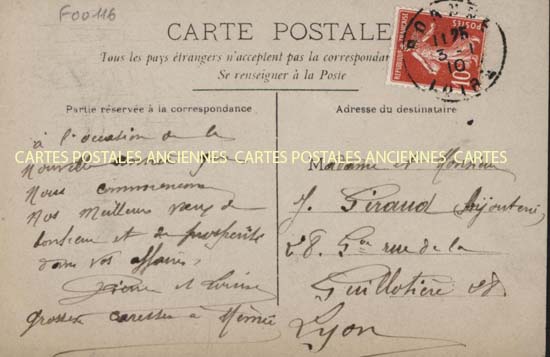 F00116
CARTE POSTALE
Tous les pays étrangers n'acceptent pas la correspondance
Se renseigner à la Poste
REPUBLIQUE FRANÇAISE
POSTES
10
ROANNE
11 25
3 - 1
10
LOIRE
Partie réservée à la correspondance
Adresse du destinataire
à l'occasion de la
Nouvelle
CARTES POSTALES ANCIENNES CARTES POSTALES ANCIENNES CARTES POSTALES ANCIENNES
Nous
Nos meilleurs vœux de
bonheur et de prosperité
dans vos affaires,
Pierre et Louise
grosses caresses à Mémée
Madame et Monsieur
J. Giraud Bijouterie
28. Gde rue de la
Guillotière 28
Lyon